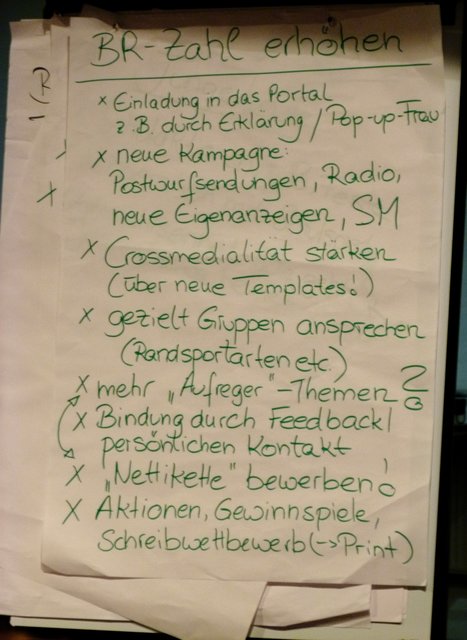 BR-Zahl erhöhen
x Einladung in das Portal
z.B. durch Erklärung / Pop-up-Frau
x neue Kampagne:
Postwurfsendungen, Radio,
neue Eigenanzeigen, SM
x Crossmedialität stärken
(über neue Templates!)
x gezielt Gruppen ansprechen
(Randsportarten etc.)
x mehr „Aufreger"-Themen ?
x Bindung durch Feedback/
persönlichen Kontakt
x „Nettikette" bewerben!
x Aktionen, Gewinnspiele,
Schreibwettbewerb (->Print)